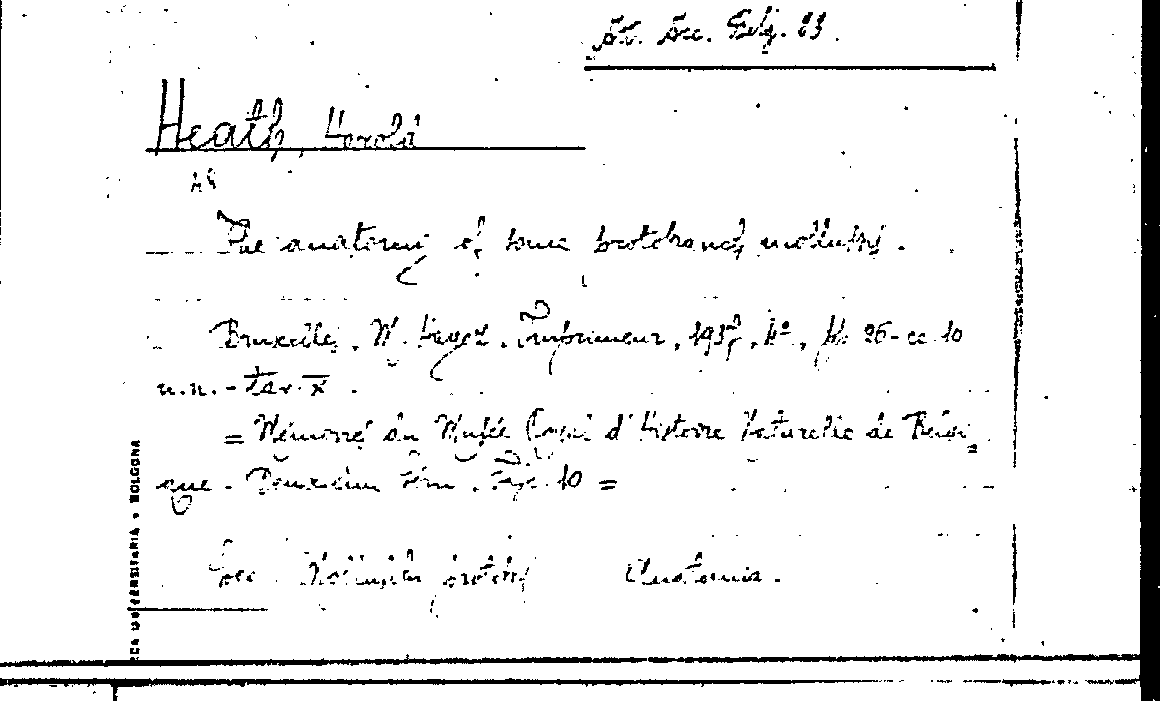 Belg. 83.
Heath, Harold
The anatomy of some protobranch mollusks.
Bruxelles, M. Hayez, Imprimeur, 1937, 4°, pp. 26 - cc. 10
n.n. - tav. X.
= Mémoires du Musée Royal d'Histoire Naturelle de Belgi=
que - Deuxième Série. Fasc. 10 =
Anatomia.
VERSITARIA • BOLOGNA